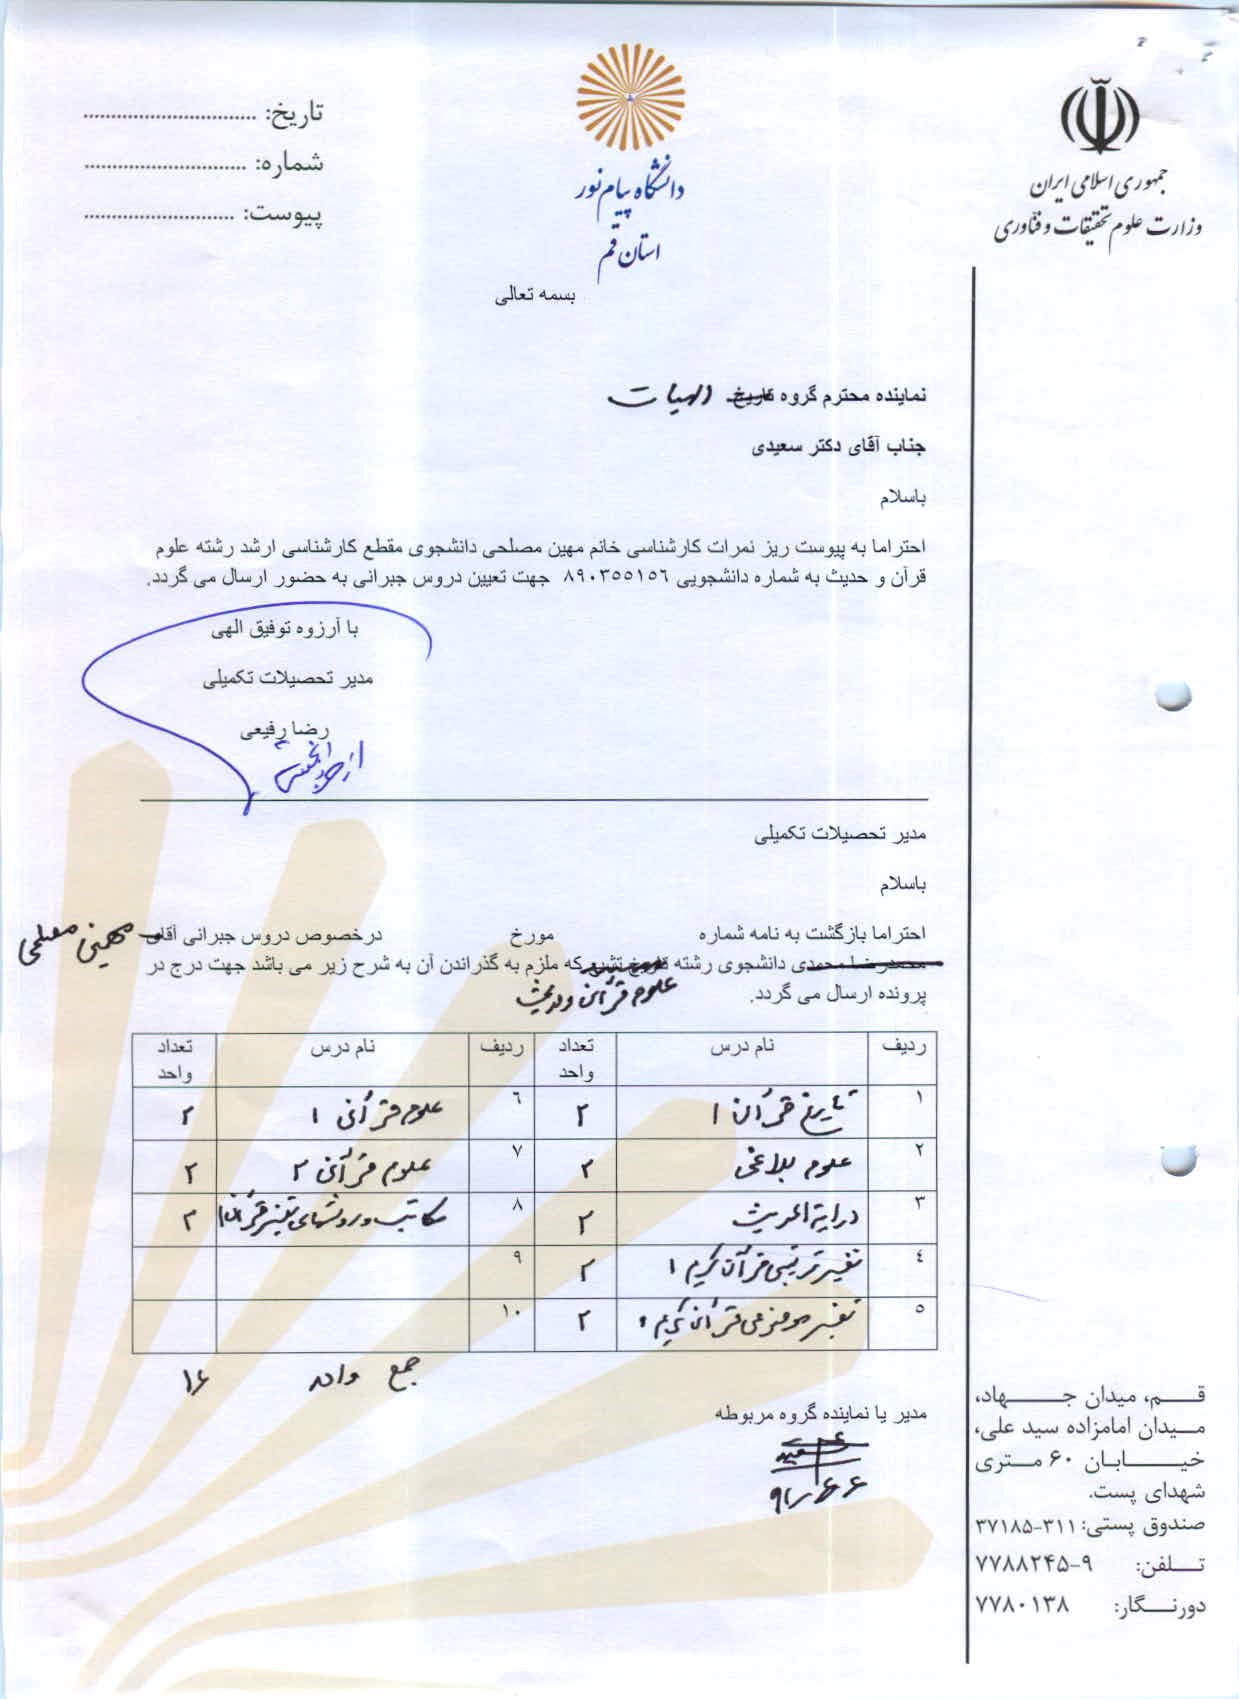 جمهوری اسلامی ایران
وزارت علوم تحقیقات و فنّاوری
دانشگاه پیام نور
استان قم
تاریخ: ..............................
شماره: ............................
پیوست: ..........................
بسمه تعالی
نماینده محترم گروه تاریخ الهیات
جناب آقای دکتر سعیدی
باسلام
احتراما به پیوست ریز نمرات کارشناسی خانم مهین مصلحی دانشجوی مقطع کارشناسی ارشد رشته علوم
قرآن و حدیث به شماره دانشجویی ۸۹۰۳۵۵۱۵۶ جهت تعیین دروس جبرانی به حضور ارسال می گردد.
با آرزوه توفیق الهی
مدیر تحصیلات تکمیلی
رضا رفیعی
مدیر تحصیلات تکمیلی
باسلام
احتراما بازگشت به نامه شماره مورخ درخصوص دروس جبرانی آقای مهین مصلحی
محمدرضا محمدی دانشجوی رشته تاریخ تشیع که ملزم به گذراندن آن به شرح زیر می باشد جهت درج در
علوم قرآن و حدیث
پرونده ارسال می گردد.
ردیف نام درس تعداد واحد ردیف نام درس تعداد واحد
۱ تاریخ قرآن ۱ ۲ ۶ علوم قرآنی ۱ ۲
۲ علوم بلاغی ۲ ۷ علوم قرآنی ۲ ۲
۳ درایة الحدیث ۲ ۸ مکاتب و روشهای تفسیر قرآن ۱ ۲
۴ تفسیر ترتیبی قرآن کریم ۱ ۲ ۹
۵ تفسیر موضوعی قرآن کریم ۱ ۲ ۱۰
جمع واحد ۱۶
مدیر یا نماینده گروه مربوطه
۹۱/۶/۶
قم، میدان جهاد،
میدان امامزاده سید علی،
خیابان ۶۰ متری
شهدای پست.
صندوق پستی: ۳۱۱-۳۷۱۸۵
تلفن: ۹-۷۷۸۸۲۴۵
دورنگار: ۷۷۸۰۱۳۸